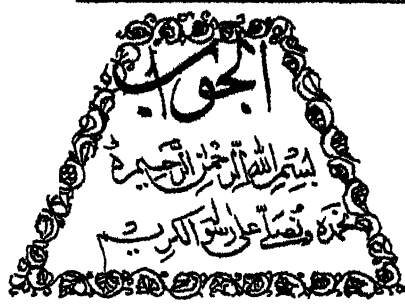 الجواب
بسم الله الرحمن الرحيم
نحمده ونصلي على رسوله الكريم